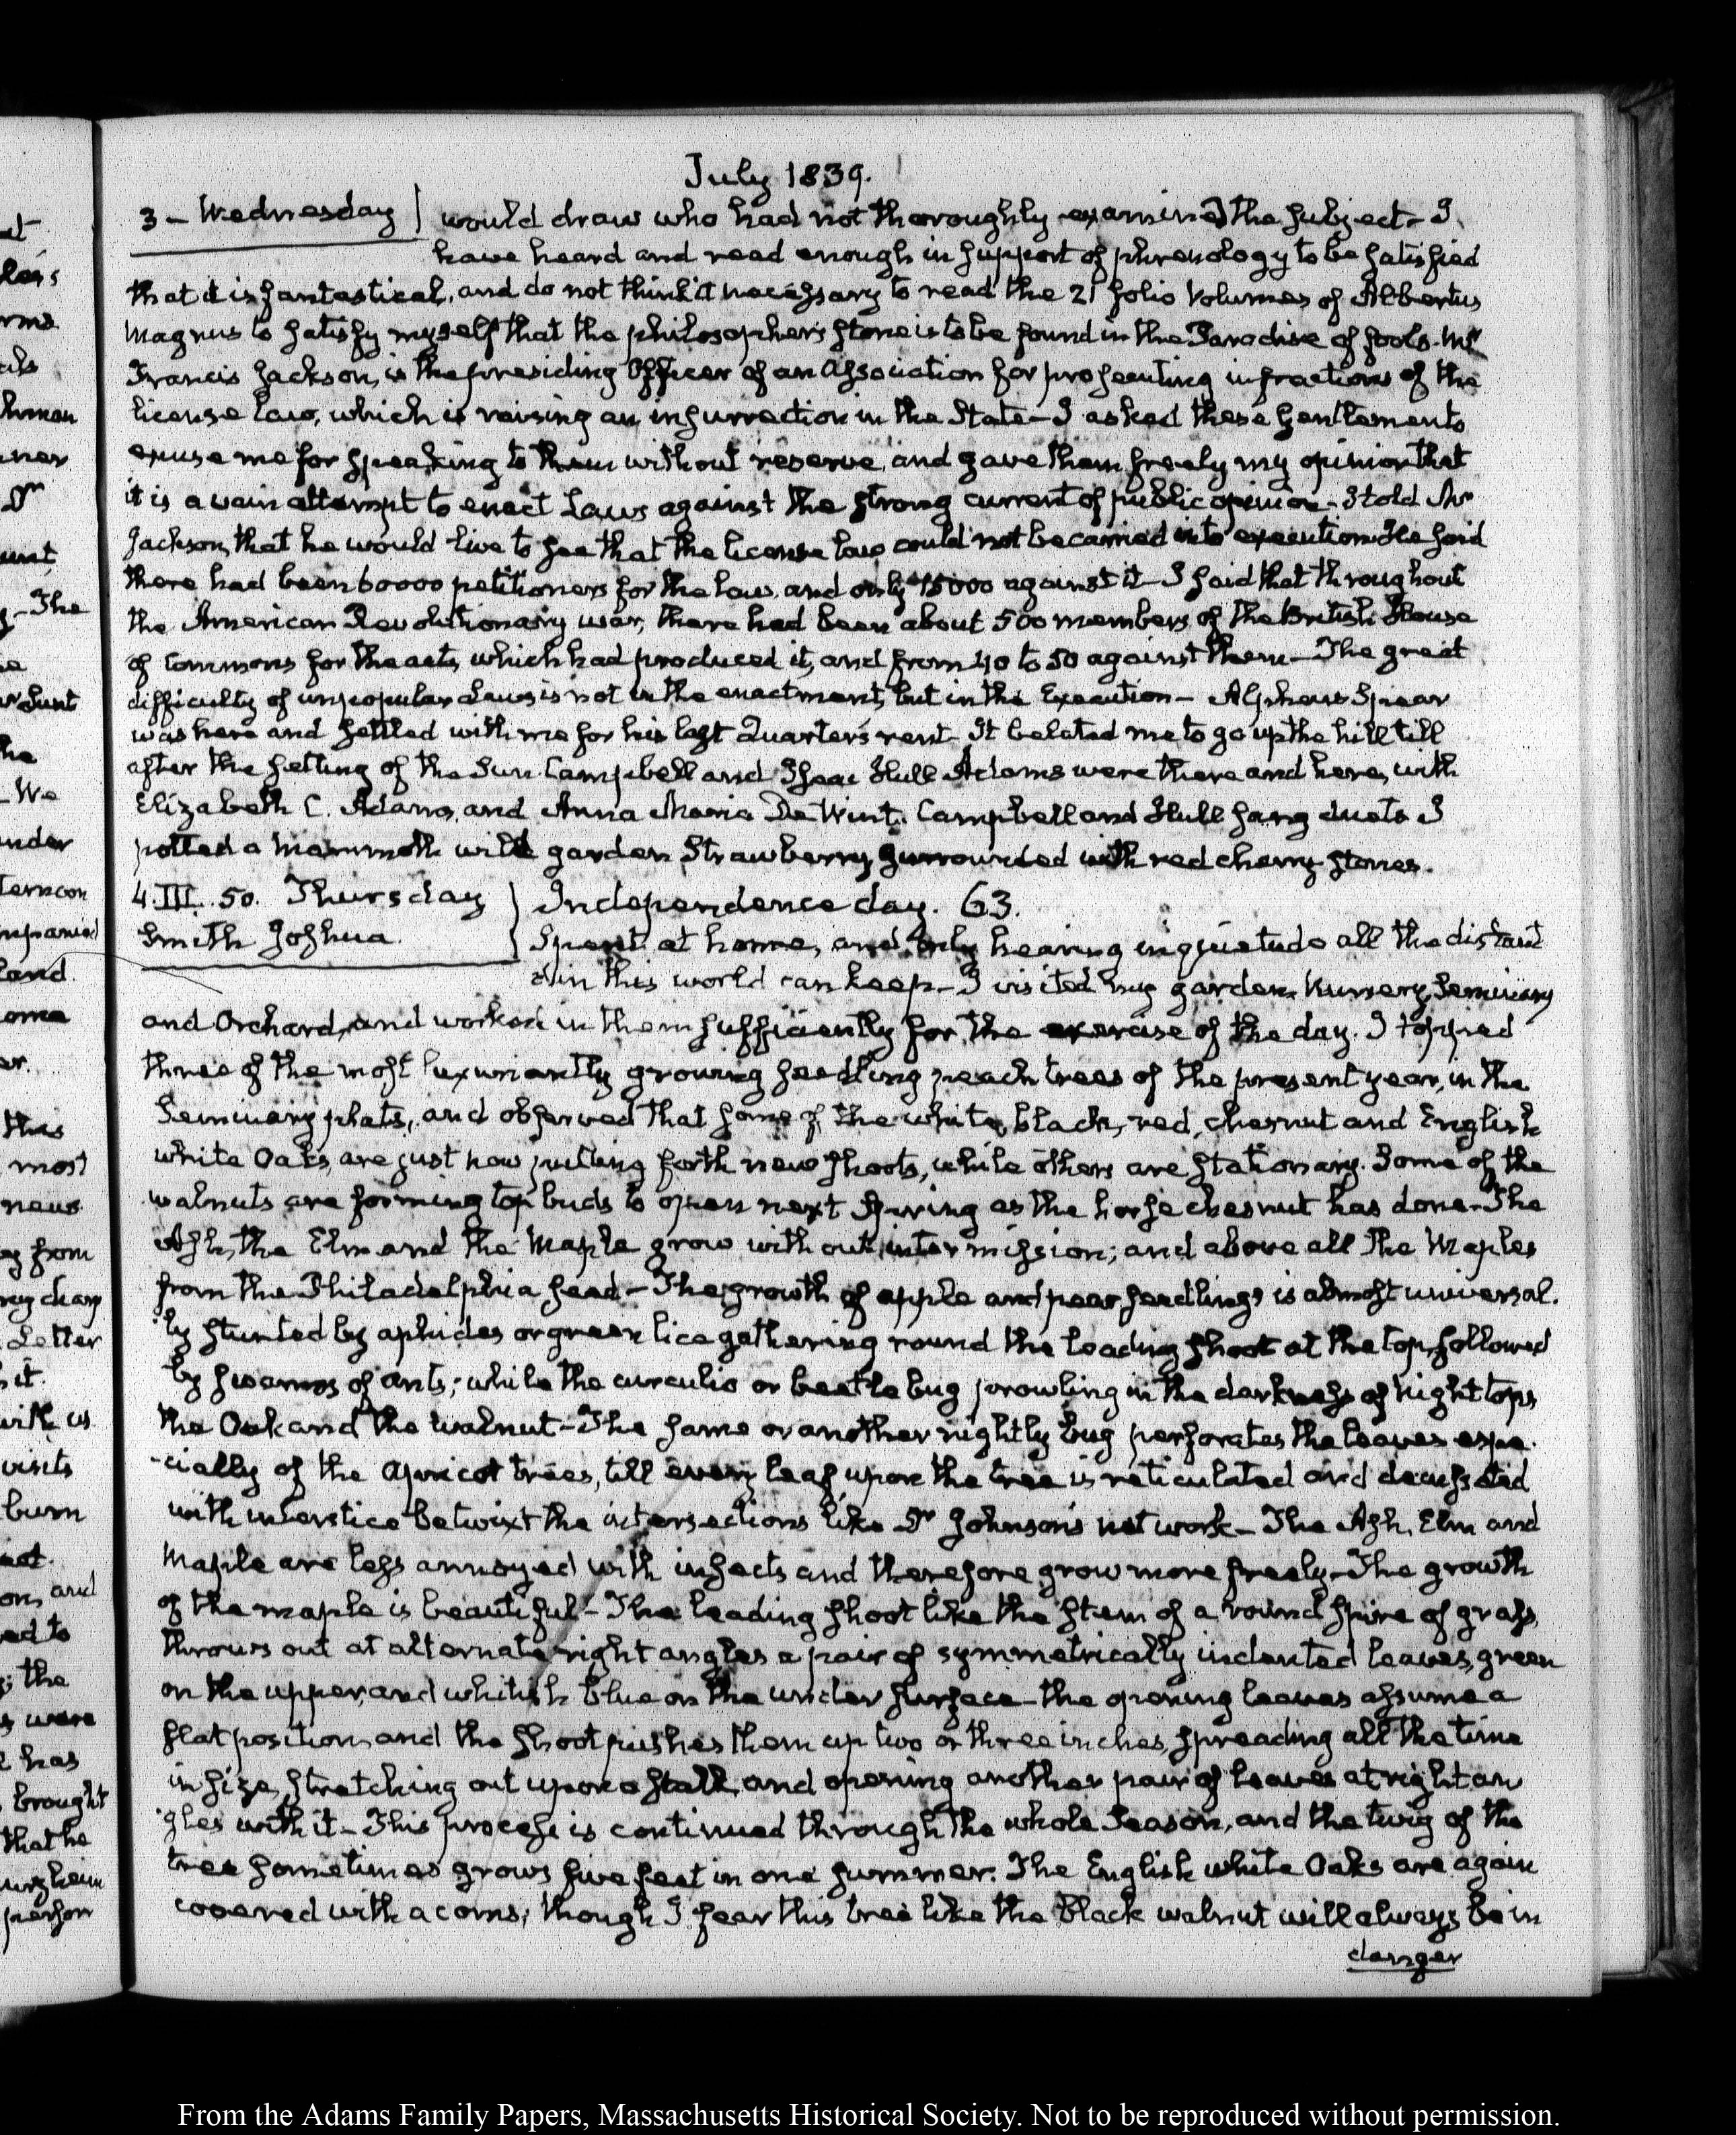 July 1839.
3 – Wednesday } would draw who had not thoroughly examined the subject – I
have heard and read enough in support of phrenology to be satisfied
that it is fantastical, and do not think it necessary to read the 21 folio Volumes of Albertus
Magnus to satisfy myself that the philosopher's stone is to be found in the Paradise of fools. Mr
Francis Jackson, is the presiding Officer of an Association for prosecuting infractions of the
license law, which is raising an insurrection in the State – I asked these Gentlemen to
excuse me for speaking to them without reserve, and gave them freely my opinion that
it is a vain attempt to enact Laws against the strong current of public opinion – I told Mr
Jackson, that he would live to see that the license law could not be carried into execution. He said
there had been 60000 petitioners for the law, and only 15000 against it – I said that throughout
the American Revolutionary war, there had been about 500 members of the British House
of Commons for the acts, which had produced it, and from 40 to 50 against them – The great
difficulty of unpopular Laws is not in the enactment, but in the Execution – Alpheus Spear
was here and settled with me for his last Quarter's rent – It belated me to go up the hill till
after the setting of the Sun. Campbell and Isaac Hull Adams were there and here, with
Elizabeth C. Adams, and Anna Maria De Wint. Campbell and Hull sang duets I
potted a Mammoth wild garden Strawberry surrounded with red cherry stones.
4. III. 50. Thursday } Independence day. 63.
Smith Joshua. Spent at home, and only hearing in quietude all the distant
din this world can keep – I visited my garden, Nursery, Seminary
and Orchard, and worked in them sufficiently for the exercise of the day. I topped
three of the most luxuriantly growing seedling peach trees of the present year, in the
Seminary plats, and observed that some of the white, black, red, chesnut and English
white Oaks, are just now putting forth new shoots, while others are stationary. Some of the
walnuts are forming top buds to open next Spring as the horse chesnut has done – The
Ash, the Elm and the Maple grow without intermission; and above all the Maples
from the Philadelphia seed – The growth of apple and pear seedlings is almost universal-
ly stunted by aphides or green lice gathering round the leading shoot at the top, followed
by swarms of ants; while the curculio or beetle bug prowling in the darkness of night tops
the Oak and the walnut – The same or another nightly bug perforates the leaves espe-
cially of the Apricot trees, till every leaf upon the tree is reticulated and decussated
with interstice betwixt the intersections like Dr Johnson's net work – The Ash, Elm and
Maple are less annoyed with insects and therefore grow more freely – The growth
of the maple is beautiful – The leading shoot like the stem of a round spire of grass,
throws out at alternate right angles a pair of symmetrically indented leaves, green
on the upper, and whitish blue on the under surface – the opening leaves assume a
flat position, and the shoot pushes them up two or three inches, spreading all the time
in size, stretching out upon a stalk and opening another pair of leaves at right an-
gles with it – This process is continued through the whole Season, and the twig of the
tree sometimes grows five feet in one summer. The English white Oaks are again
covered with acorns; though I fear this tree like the black walnut will always be in
danger
From the Adams Family Papers, Massachusetts Historical Society. Not to be reproduced without permission.